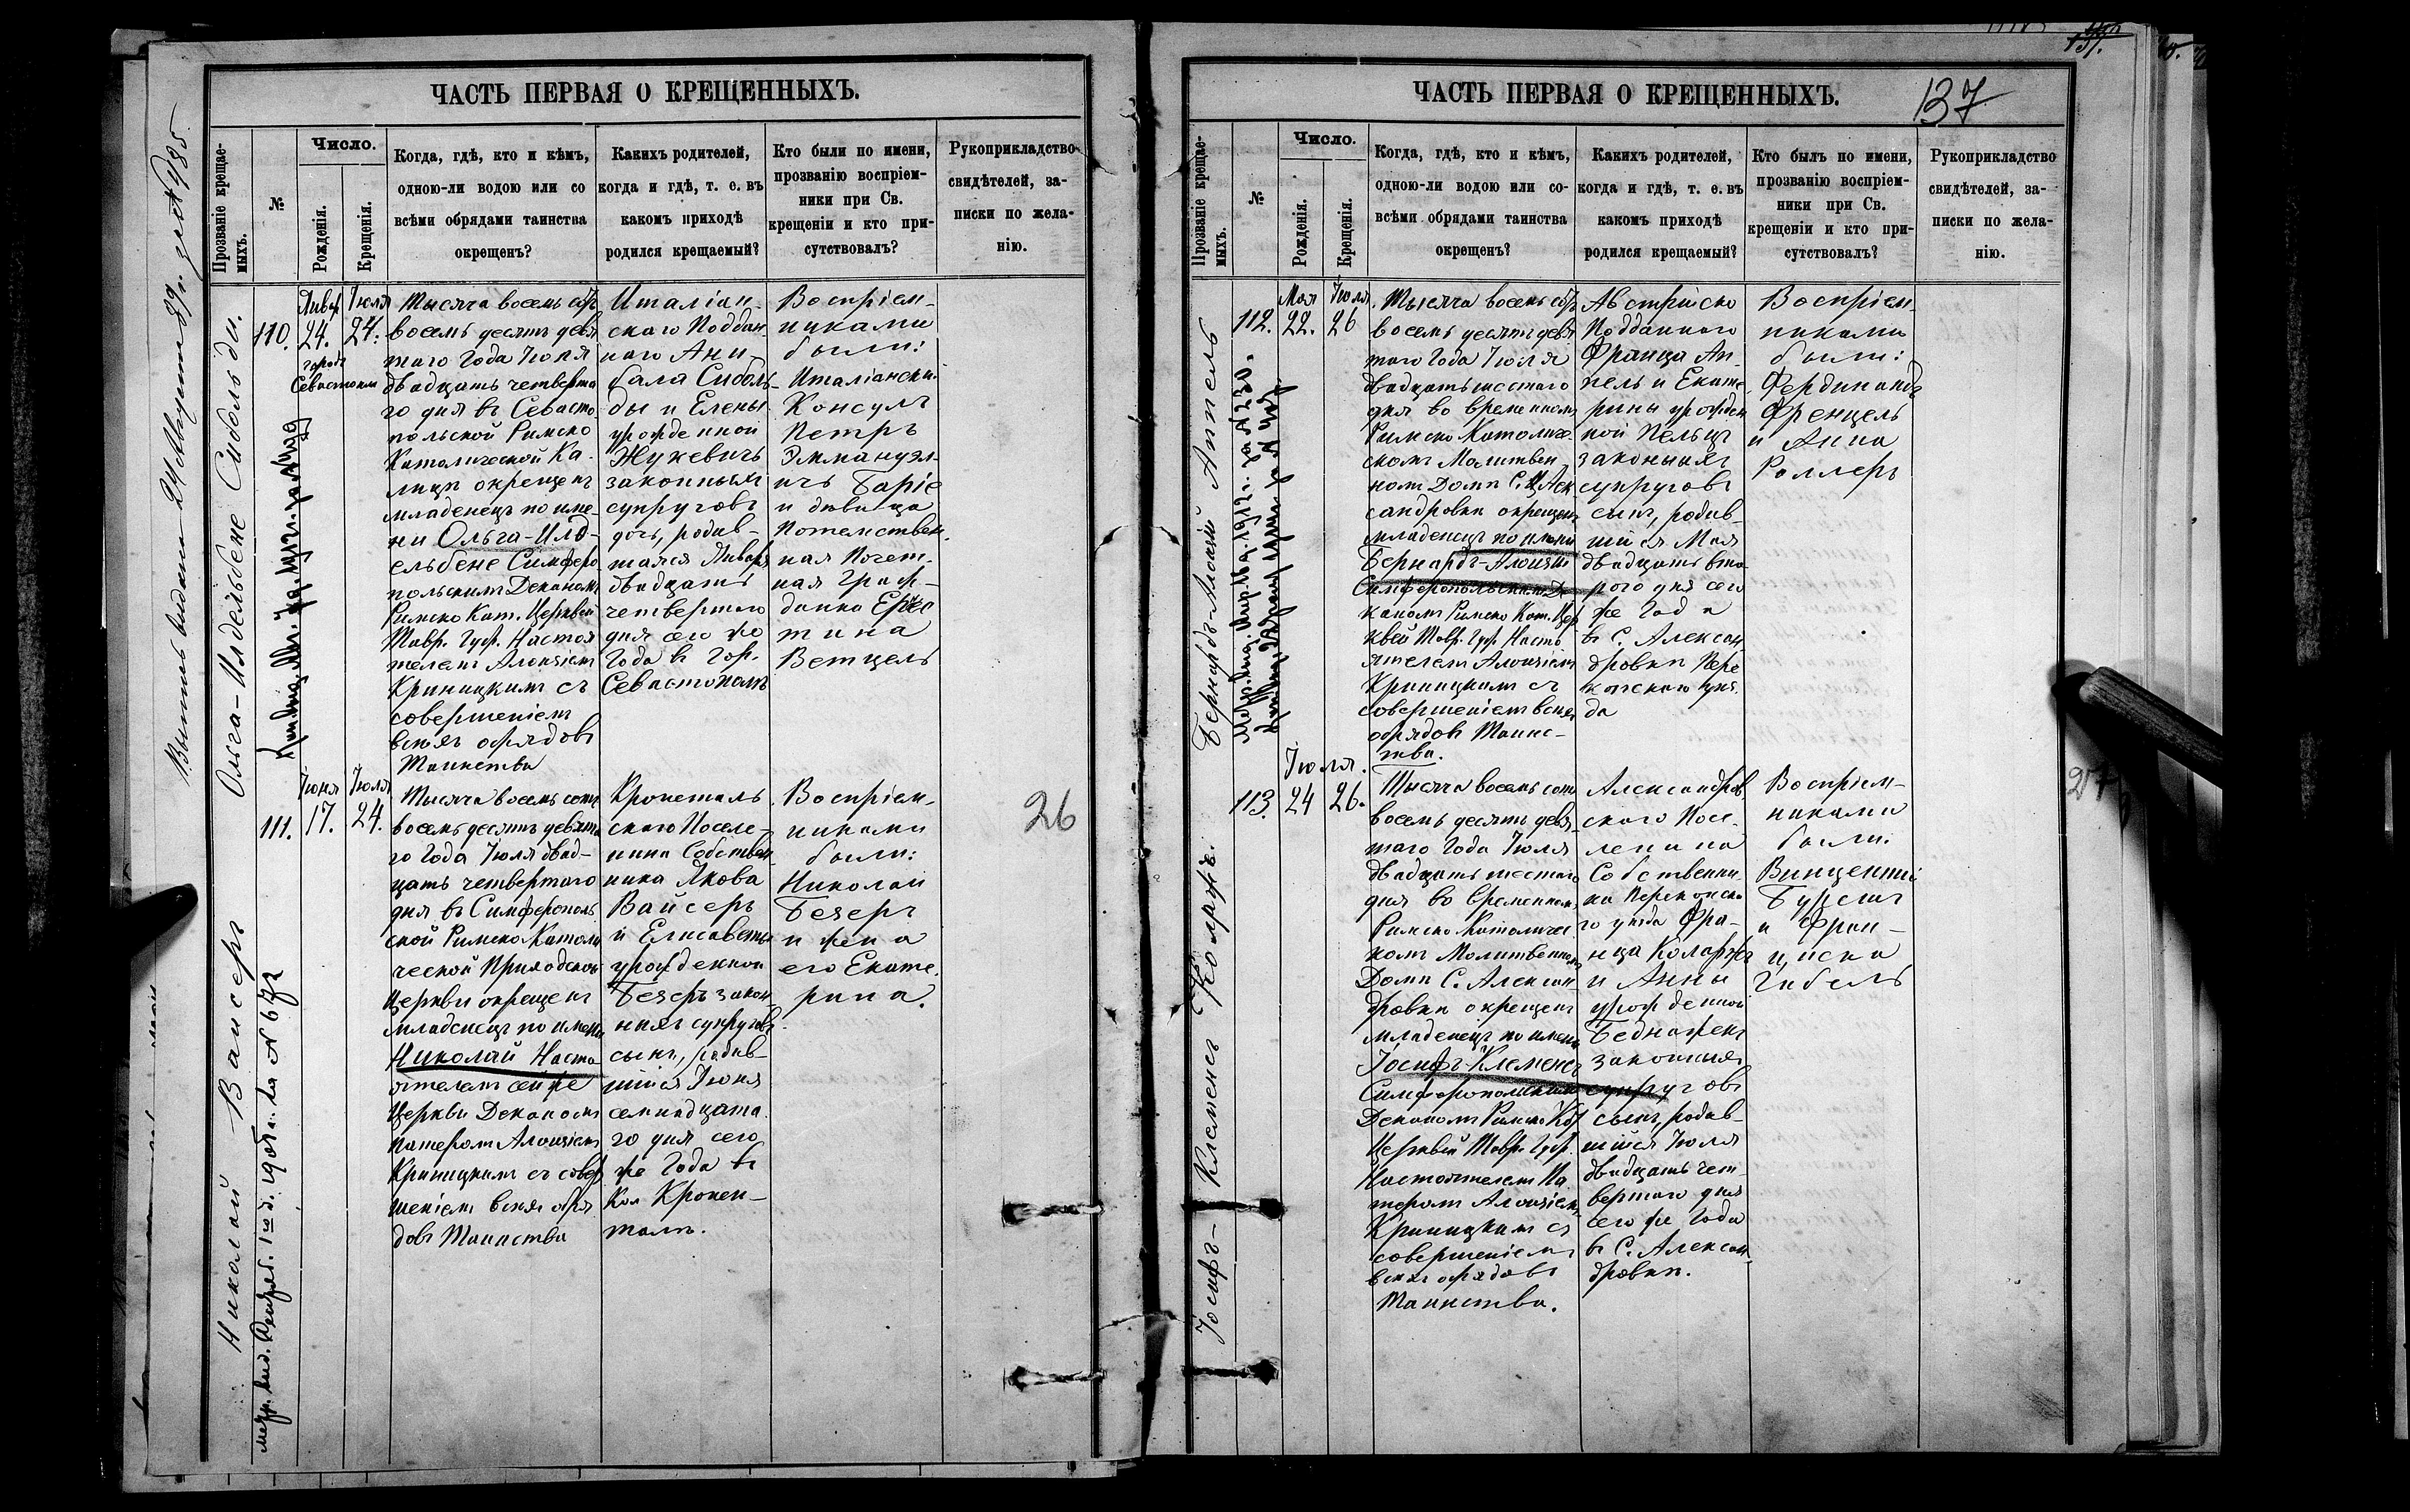 ЧАСТЬ ПЕРВАЯ О КРЕЩЕННЫХЪ.
Прозваніе крещае-
мыхъ.
№
Число.
Рожденія.
Крещенія.
Когда, гдѣ, кто и кѣмъ,
одною-ли водою или со
всѣми обрядами таинства
окрещенъ?
Какихъ родителей,
когда и гдѣ, т. е. въ
какомъ приходѣ
родился крещаемый?
Кто были по имени,
прозванію воспріем-
ники при Св.
крещеніи и кто при-
сутствовалъ?
Рукоприкладство
свидѣтелей, за-
писки по жела-
нію.
Ольга-Илдельбене Сибольди.
110.
Январ
24.
городъ
Севастополь
Іюля
24.
Тысяча восемь сотъ
восемь десятъ девя
таго Года Іюля
двадцать четверта
го дня въ Севасто
польской Римско
Католической Ка-
лицѣ окрещенъ
младенецъ по име-
ни Ольга-Илд-
ельбене Симферо
польскимъ Деканомъ
Римско Кат. Церквей
Тавр. Губ. Настоя
телемъ Алоизіемъ
Криницкимъ съ
совершеніемъ
всѣхъ обрядовъ
Таинства
Италіан-
скаго Поддан-
наго Ани-
бала Сиболь-
ды и Елены
урожденной
Жукевичъ
законныхъ
супруговъ
дочь, родив-
шаяся Января
двадцать
четвертаго
дня сего же
Года въ Гор.
Севастополѣ
Воспріем-
никами
были:
Италіански
Консулъ
Петръ
Эммануэл-
ичъ Баріе
и дѣвица
Потомствен-
ная Почет-
ная Граж-
данка Ернес
тина
Ветцель
Николай Вайсеръ
111.
Іюня
17.
Іюля
24.
Тысяча восемь сотъ
восемь десятъ девята
го Года Іюля двад-
цать четвертаго
дня въ Симферополь
ской Римско Католи
ческой Приходской
Церкви окрещенъ
младенецъ по имени
Николай Насто
ятелемъ сей же
Церкви Деканомъ
Патеромъ Алоизіемъ
Криницкимъ съ совер
шеніемъ всѣхъ обря
довъ Таинства
Кронсталь
скаго Поселе-
нина Собствен
ника Якова
Вайсеръ
и Елисаветы
урожденной
Безеръ закон
ныхъ супруговъ
сынъ, родив-
шійся Іюня
семнадцата
го дня сего
же Года въ
Кол Кронен-
талѣ.
Воспріем-
никами
были:
Николай
Безеръ
и жена
его Екате-
рина.
26
ЧАСТЬ ПЕРВАЯ О КРЕЩЕННЫХЪ.
137
Прозваніе крещае-
мыхъ.
№
Число.
Рожденія.
Крещенія.
Когда, гдѣ, кто и кѣмъ,
одною-ли водою или со-
всѣми обрядами таинства
окрещенъ?
Какихъ родителей,
когда и гдѣ, т. е. въ
какомъ приходѣ
родился крещаемый?
Кто былъ по имени,
прозванію воспріем-
ники при Св.
крещеніи и кто при-
сутствовалъ?
Рукоприкладство
свидѣтелей, за-
писки по жела-
нію.
Бернардъ-Алоизій Аппель
112.
Мая
22.
Іюля
26
Тысяча восемь сотъ
восемь десятъ девя
таго Года Іюля
двадцать шестаго
дня во временномъ
Римско Католиче-
скомъ Молитвен
номъ Домѣ С. Алек
сандровки окрещенъ
младенецъ по имени
Бернардъ-Алоизій
Симферопольскимъ Де
каномъ Римско Кат. Цер
квей Тавр. Губ. Насто
ятелемъ Алоизіемъ
Криницкимъ съ
совершеніемъ всѣхъ
обрядовъ Таинс-
тва.
Австрійско
Подданнаго
Франца Ап-
пель и Екате-
рины урожден
ной Пельцъ
законныхъ
супруговъ
сынъ, родив-
шійся Мая
двадцать вто-
рого дня сего
же Года
въ С. Алексан
дровкѣ Пере
копскаго уѣз
да
Воспріем-
никами
были:
Фердинандъ
Френцель
и Анна
Роллеръ
Іосифъ-Клеменсъ Коларжъ.
113.
Іюля.
24
26.
Тысяча восемь сотъ
восемь десятъ девя-
таго Года Іюля
двадцать шестаго
дня во временномъ
Римско Католичес
комъ Молитвенномъ
Домѣ С. Алексан
дровки окрещенъ
младенецъ по имени
Іосифъ-Клеменсъ
Симферопольскимъ
Деканомъ Римско Кат
Церквей Тавр. Губ.
Настоятелемъ Па
теромъ Алоизіемъ
Криницкимъ съ
совершеніемъ
всѣхъ обрядовъ
Таинства.
Александров
скаго Посе-
ленина
Собственни-
ка Перекопска
го уѣзда Фра-
нца Коларжъ
и Анны
урожденной
Беднаженъ
законныхъ
супруговъ
сынъ, родив-
шійся Іюля
двадцать чет
вертаго дня
сего же Года
въ С. Алексан
дровкѣ.
Воспріем-
никами
были:
Винцентій
и Фран-
циска
Гибель
27